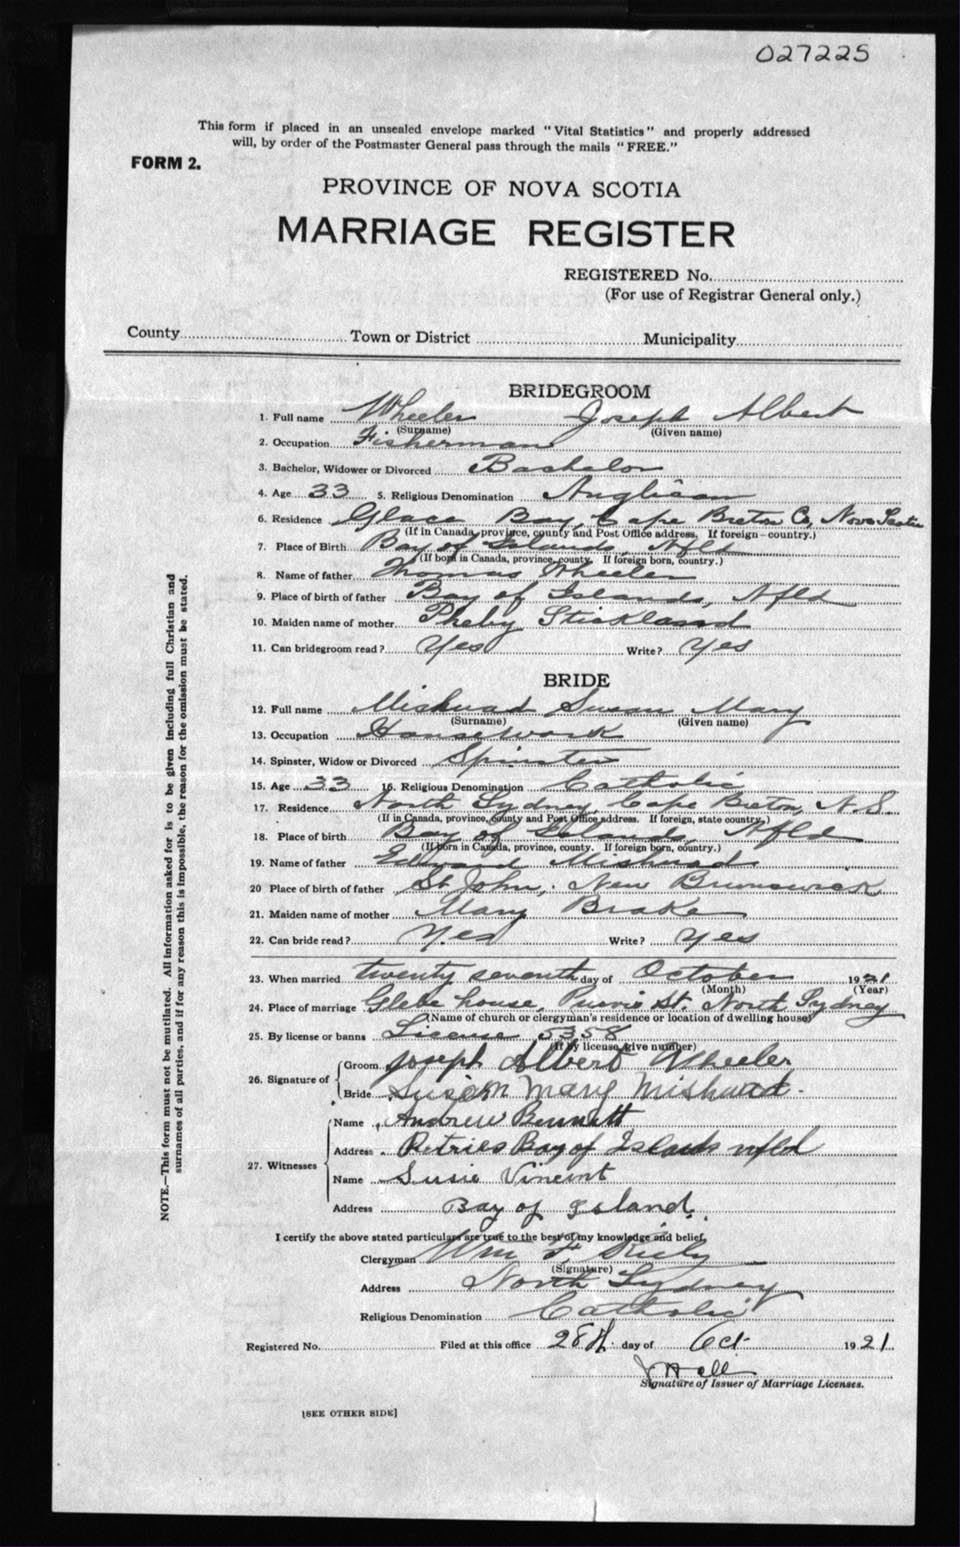 027225
This form if placed in an unsealed envelope marked "Vital Statistics" and properly addressed
will, by order of the Postmaster General pass through the mails "FREE."
FORM 2.
PROVINCE OF NOVA SCOTIA
MARRIAGE REGISTER
REGISTERED No.
(For use of Registrar General only.)
County Town or District Municipality
BRIDEGROOM
1. Full name Wheeler Joseph Albert
(Surname) (Given name)
2. Occupation Fisherman
3. Bachelor, Widower or Divorced Bachelor
4. Age 33 5. Religious Denomination Anglican
6. Residence Glace Bay, Cape Breton Co, Nova Scotia
(If in Canada, province, county and Post Office address. If foreign—country.)
7. Place of Birth Bay of Islands, Nfld
(If born in Canada, province, county. If foreign born, country.)
8. Name of father Thomas Wheeler
9. Place of birth of father Bay of Islands, Nfld
10. Maiden name of mother Pheby Stickland
11. Can bridegroom read? Yes Write? Yes
BRIDE
12. Full name Mishuad Susan Mary
(Surname) (Given name)
13. Occupation Housework
14. Spinster, Widow or Divorced Spinster
15. Age 33 16. Religious Denomination Catholic
17. Residence North Sydney, Cape Breton, N.S.
(If in Canada, province, county and Post Office address. If foreign, state country.)
18. Place of birth Bay of Islands, Nfld
(If born in Canada, province, county. If foreign born, country.)
19. Name of father Edward Mishuad
20 Place of birth of father St John, New Brunswick
21. Maiden name of mother Mary Brake
22. Can bride read? Yes Write? Yes
23. When married twenty seventh day of October 1921
(Month) (Year)
24. Place of marriage Glebe house, Purvis St. North Sydney
(Name of church or clergyman's residence or location of dwelling house)
25. By license or banns License 5358
(If by license, give number)
26. Signature of
Groom Joseph Albert Wheeler
Bride Susan Mary Mishuad
27. Witnesses
Name Andrew Bennett
Address Petries Bay of Islands nfld
Name Susie Vincent
Address Bay of Island
I certify the above stated particulars are true to the best of my knowledge and belief,
Clergyman Wm F. Kiely
(Signature)
Address North Sydney
Religious Denomination Catholic
Registered No. Filed at this office 28th day of Oct 1921
Signature of Issuer of Marriage Licenses.
[SEE OTHER SIDE]
NOTE.—This form must not be mutilated. All information asked for is to be given including full Christian and
surnames of all parties, and if for any reason this is impossible, the reason for the omission must be stated.